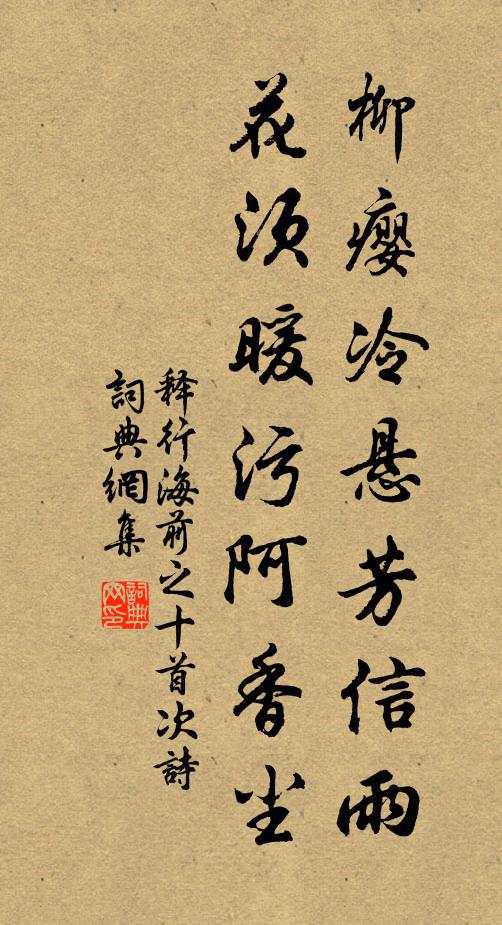 柳瘿冷悬芳信雨
花须暖污阿香尘
释行海前之十首次詩
詞典網集
詞典
网印